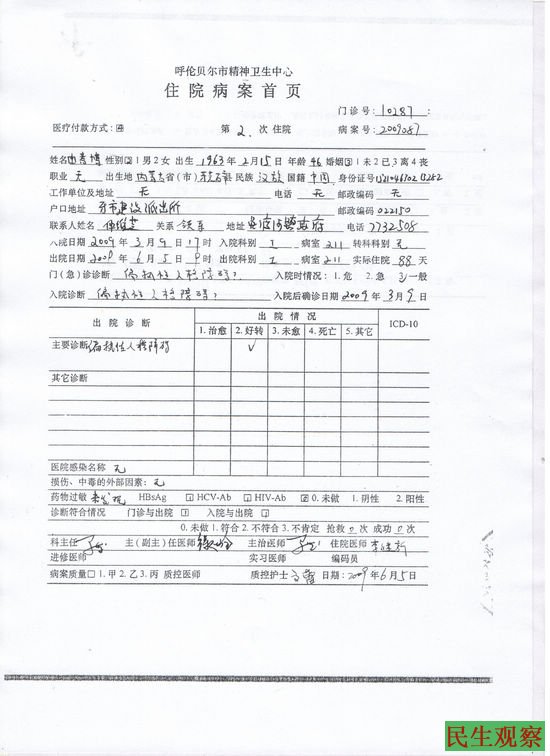 呼伦贝尔市精神卫生中心
住院病案首页
门诊号: 10287 :
医疗付款方式: 第2.次住院 病案号: 2009087
姓名 性别 2 1男2女 出生 1963年2月15日 年龄 46 婚姻 3 1未2已3离4丧
职业 无 出生地 内蒙古省(市) 民族 汉族 国籍 中国 身份证号
工作单位及地址 无 电话 无 邮政编码 无
户口地址 牙市建设派出所 邮政编码 022150
联系人姓名 关系 地址 政府 电话 7732508
入院日期 2009年3月9日17时 入院科别 1 病室 211 转科科别 无
出院日期 2009年6月5日9时 出院科别 1 病室 211 实际住院 88 天
门(急)诊诊断 偏执性人格障碍? 入院时情况: 1.危 2.急 3/一般
入院诊断 偏执性人格障碍? 入院后确诊日期 2009年3月9日
出院诊断 出院情况 ICD-10
1.治愈 2.好转 3.未愈 4.死亡 5.其它
主要诊断 偏执性人格障碍 ✓
其它诊断
医院感染名称 无
损伤、中毒的外部因素: 无
药物过敏 未发现 HBsAg HCV-Ab HIV-Ab 0.未做 1.阴性 2.阳性
诊断符合情况 门诊与出院 入院与出院
0.未做 1.符合 2.不符合 3.不肯定 抢救 0 次 成功 0 次
科主任 主(副主)任医师 主治医师 住院医师
进修医师 实习医师 编码员
病案质量□ 1.甲 2.乙 3.丙 质控医师 质控护士 日期: 2009年6月5日
民生观察